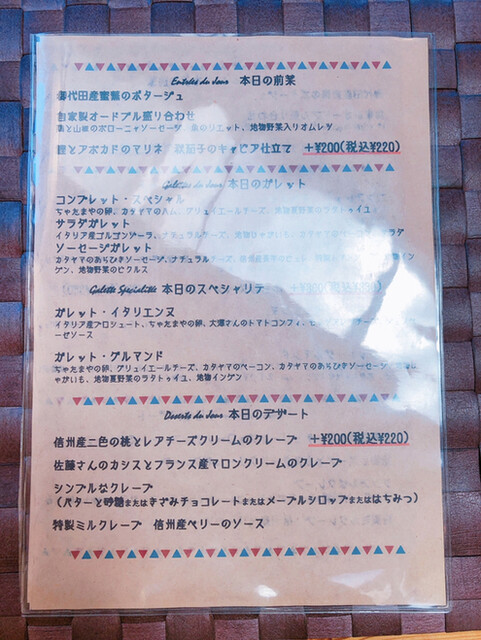 Entrées du Jour 本日の前菜
御代田産蜜薯のポタージュ
自家製オードブル盛り合わせ
のボローニャソーセージ のリエット、地物野菜入りオムレツ
とアボカドのマリネ 仕立て +¥200(税込¥220)
Galettes du Jour 本日のガレット
コンプレット・スペシャル
ちゃたまやの卵、カタヤマのハム、グリュイエールチーズ、地物夏野菜のラタトゥイユ
サラダガレット
イタリア産ゴルゴンゾーラ、ナチュラルチーズ、地物じゃがいも、カタヤマのベーコン、サラダ
ソーセージガレット
カタヤマのあらびきソーセージ、ナチュラルチーズ、地物イン
ゲン、地物野菜のピクルス
Galette Spécialité 本日のスペシャリテ
ガレット・イタリエンヌ
イタリア産プロシュート、ちゃたまやの卵、大塚さんのトマトコンフィ、
ーゼソース
ガレット・グルマンド
ちゃたまやの卵、グリュイエールチーズ、カタヤマのベーコン、カタヤマのあらびきソーセージ、
がいも、地物夏野菜のラタトゥイユ、地物インゲン
Desserts du Jour 本日のデザート
信州産二色の桃とレアチーズクリームのクレープ +¥200(税込¥220)
佐藤さんのカシスとフランス産マロンクリームのクレープ
シンプルなクレープ
(バターと砂糖またはきざみチョコレートまたはメープルシロップまたははちみつ)
特製ミルクレープ 信州産ベリーのソース